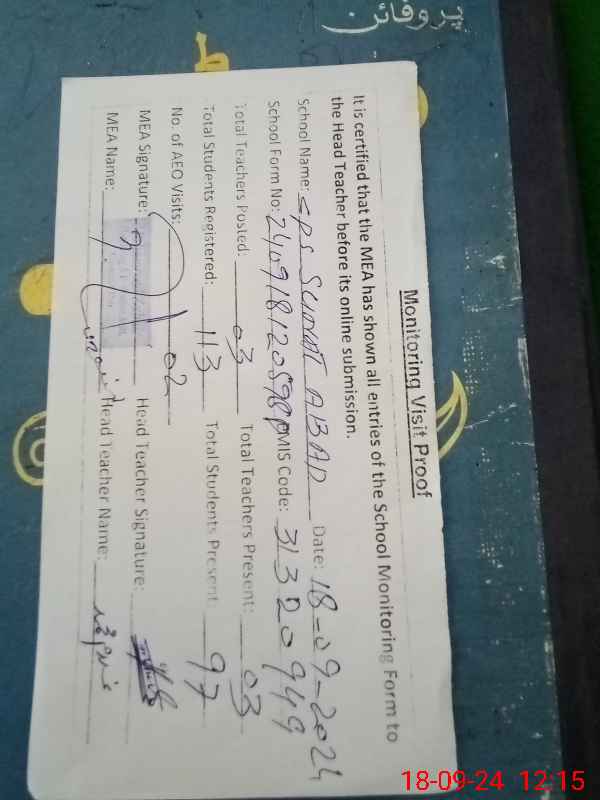 پروفائن
Monitoring Visit Proof
It is certified that the MEA has shown all entries of the School Monitoring Form to
the Head Teacher before its online submission.
School Name: GPS ABAD Date: 18-09-2024
School Form No: EMIS Code: 31320949
Total Teachers Posted: 03 Total Teachers Present: 03
Total Students Registered: 113 Total Students Present 97
No. of AEO Visits: 02
MEA Signature: Head Teacher Signature:
MEA Name: Head Teacher Name:
18-09-24 12:15